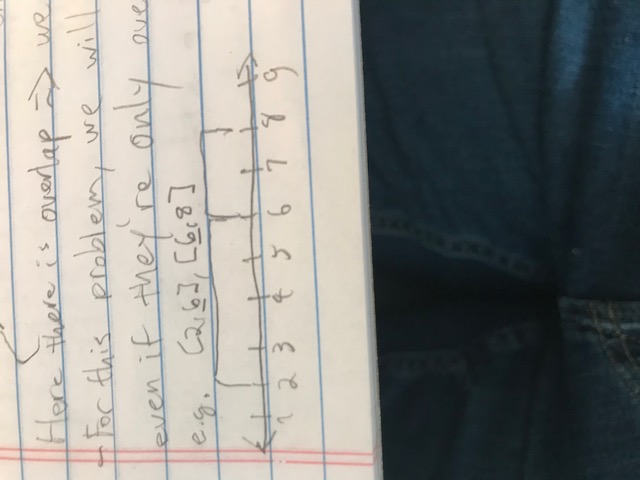 Here there is overlap => we
- For this problem, we will
even if they're only ove
e.g. [2,6], [6,8]
1 2 3 4 5 6 7 8 9